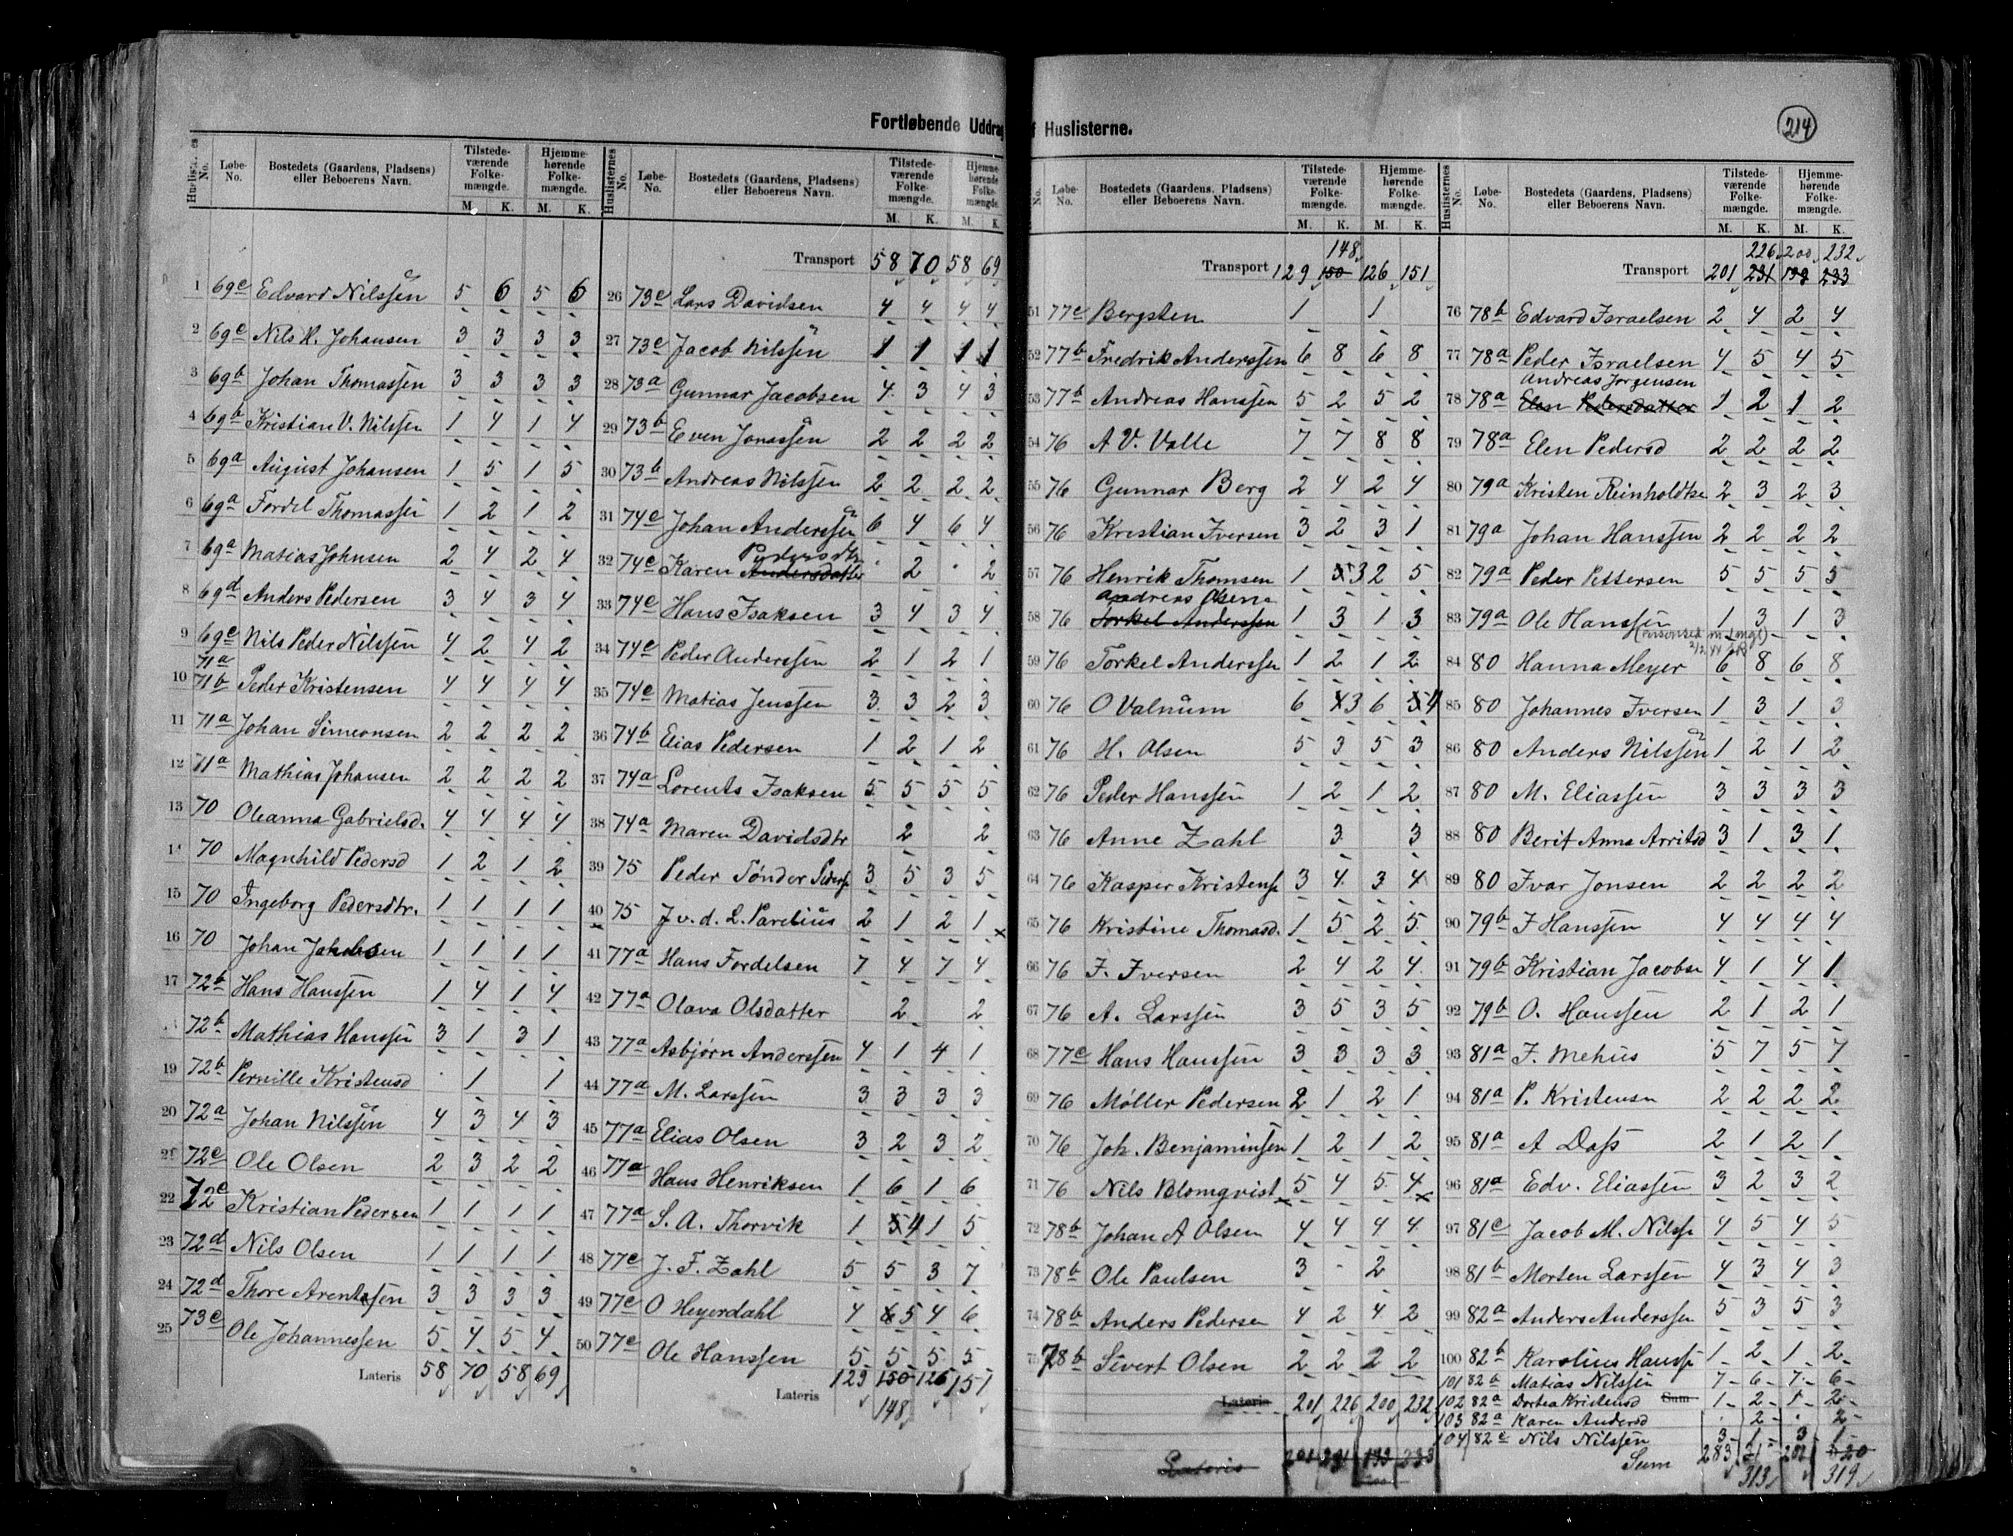 Fortløbende Uddrag af Huslisterne.
214
Huslisternes No. | Løbe-No. | Bostedets (Gaardens, Pladsens) eller Beboerens Navn. | Tilstedeværende Folkemængde. M. K. | Hjemmehørende Folkemængde. M. K.
1 69c Edvard Nilssen 5 6 5 6
2 69c Nils H. Johansen 3 3 3 3
3 69b Johan Thomassen 3 3 3 3
4 69b Kristian V. Nilssen 1 4 1 4
5 69a August Johansen 1 5 1 5
6 69a Fordel Thomassen 1 2 1 2
7 69a Matias Johnsen 2 4 2 4
8 69d Anders Pedersen 3 4 3 4
9 69c Nils Peder Nilssen 4 2 4 2
10 71a 71b Peder Kristensen 4 4 4 4
11 71a Johan Simeonsen 2 2 2 2
12 71a Mathias Johansen 2 2 2 2
13 70 Oleanna Gabrielsd. 4 4 4 4
14 70 Magnhild Pedersd 1 2 1 2
15 70 Ingeborg Pedersdtr. 1 1 1 1
16 70 Johan Jakobsen 1 1 1 1
17 72b Hans Hanssen 1 4 1 4
72b Mathias Hanssen 3 1 3 1
19 72b Pernille Kristensd 1 1
20 72a Johan Nilssen 4 3 4 3
21 72c Ole Olsen 2 3 2 2
22 72c Kristian Pedersen 1 1 1 1
23 72d Nils Olsen 1 1 1 1
24 72d Thore Arentsen 3 3 3 3
25 73c Ole Johannessen 5 4 5 4
Lateris 58 70 58 69
Huslisternes No. | Løbe-No. | Bostedets (Gaardens, Pladsens) eller Beboerens Navn. | Tilstedeværende Folkemængde. M. K. | Hjemmehørende Folkemængde. M. K.
Transport 58 70 58 69
26 73c Lars Davidsen 4 4 4 4
27 73c Jacob Nilssen 1 1 1 1
28 73a Gunnar Jacobsen 4 3 4 3
29 73b Even Jonassen 2 2 2 2
30 73b Andreas Nilssen 2 2 2 2
31 74c Johan Anderssen 6 4 6 4
32 74c Karen Andersdatter Pedersdtr 2 2
33 74c Hans Isaksen 3 4 3 4
34 74c Peder Anderssen 2 1 2 1
35 74c Matias Jenssen 3 3 2 3
36 74b Elias Pedersen 1 2 1 2
37 74a Lorents Isaksen 5 5 5 5
38 74a Maren Davidsdtr 2 2
39 75 Peder Tønder Peders 3 5 3 5
40 75 J v. d. L. Parelius 2 1 2 1
41 77a Hans Fordelsen 7 4 7 4
42 77a Olava Olsdatter 2 2
43 77a Asbjørn Anderssen 4 1 4 1
44 77a M. Larssen 3 3 3 3
45 77a Elias Olsen 3 2 3 2
46 77a Hans Henriksen 1 6 1 6
47 77a S. A. Thorvik 1 5 4 1 5
48 77c J. F. Zahl 5 5 3 7
49 77c O Heyerdahl 4 6 5 4 6
50 77c Ole Hanssen 5 5 5 5
Lateris 129 150 126 151
148
No. | Løbe-No. | Bostedets (Gaardens, Pladsens) eller Beboerens Navn. | Tilstedeværende Folkemængde. M. K. | Hjemmehørende Folkemængde. M. K.
148
Transport 129 150 126 151
51 77c Bergsten 1 1
52 77b Fredrik Anderssen 6 8 6 8
53 77b Andreas Hanssen 5 2 5 2
54 76 A V. Valle 7 7 8 8
55 76 Gunnar Berg 2 4 2 4
56 76 Kristian Iversen 3 2 3 1
57 76 Henrik Thomsen 1 5 3 2 5
Andreas Olsen
58 76 Torkel Anderssen 1 3 1 3
59 76 Torkel Anderssen 1 2 1 2
60 76 O Valnum 6 4 3 6 3 4
61 76 H. Olsen 5 3 5 3
62 76 Peder Hanssen 1 2 1 2
63 76 Anne Zahl 3 3
64 76 Kasper Kristens 3 4 3 4
65 76 Kristine Thomasd. 1 5 2 5
66 76 F. Iversen 2 4 2 4
67 76 A. Larssen 3 5 3 5
68 77c Hans Hanssen 3 3 3 3
69 76 Møller Pedersen 2 1 2 1
70 76 Joh. Benjaminsen 1 2 1 2
71 76 Nils Blomqvist 5 4 5 4
72 78b Johan A Olsen 4 4 4 4
73 78b Ole Paulsen 3 2
74 78b Anders Pedersen 4 2 4 2
75 78b Sivert Olsen 2 2 2 2
Lateris 201 226 200 232
Lateris 201 231 199 233
200
Huslisternes No. | Løbe-No. | Bostedets (Gaardens, Pladsens) eller Beboerens Navn. | Tilstedeværende Folkemængde. M. K. | Hjemmehørende Folkemængde. M. K.
226 200 232
Transport 201 231 199 233
76 78b Edvard Israelsen 2 4 2 4
77 78a Peder Israelsen 4 5 4 5
Andreas Jørgensen
78 78a Elen Pedersdatter 1 2 1 2
79 78a Elen Pedersd 2 2 2 2
80 79a Kristen Reinholdtse 2 3 2 3
81 79a Johan Hanssen 2 2 2 2
82 79a Peder Pettersen 5 5 5 5
83 79a Ole Hanssen 1 3 1 3
84 80 Hanna Meyer 6 8 6 8
85 80 Johannes Iversen 1 3 1 3
86 80 Anders Nilssen 1 2 1 2
87 80 M. Eliassen 3 3 3 3
88 80 Berit Anna Arritsd 3 1 3 1
89 80 Ivar Jonsen 2 2 2 2
90 79b J Hanssen 4 4 4 4
91 79b Kristian Jacobse 4 1 4 1
92 79b O. Hanssen 2 1 2 1
93 81a J. Mehus 5 7 5 7
94 81a P. Kristensn 2 2 2 2
95 81a A Dass 2 1 2 1
96 81a Edv. Eliassen 3 2 3 2
97 81c Jacob M. Nilss 4 5 4 5
98 81b Morten Larssen 4 3 4 3
99 82a Anders Anderssen 5 3 5 3
100 82b Karolius Hanss 1 2 1 2
101 82b Matias Nilssen 7 6 7 6
102 82a Dortea Kristensd Sum 1 2 1 2
103 82a Karen Andersd 2 2
104 82c Nils Nilssen 3 1 3 1
Sum 283 320
313 319